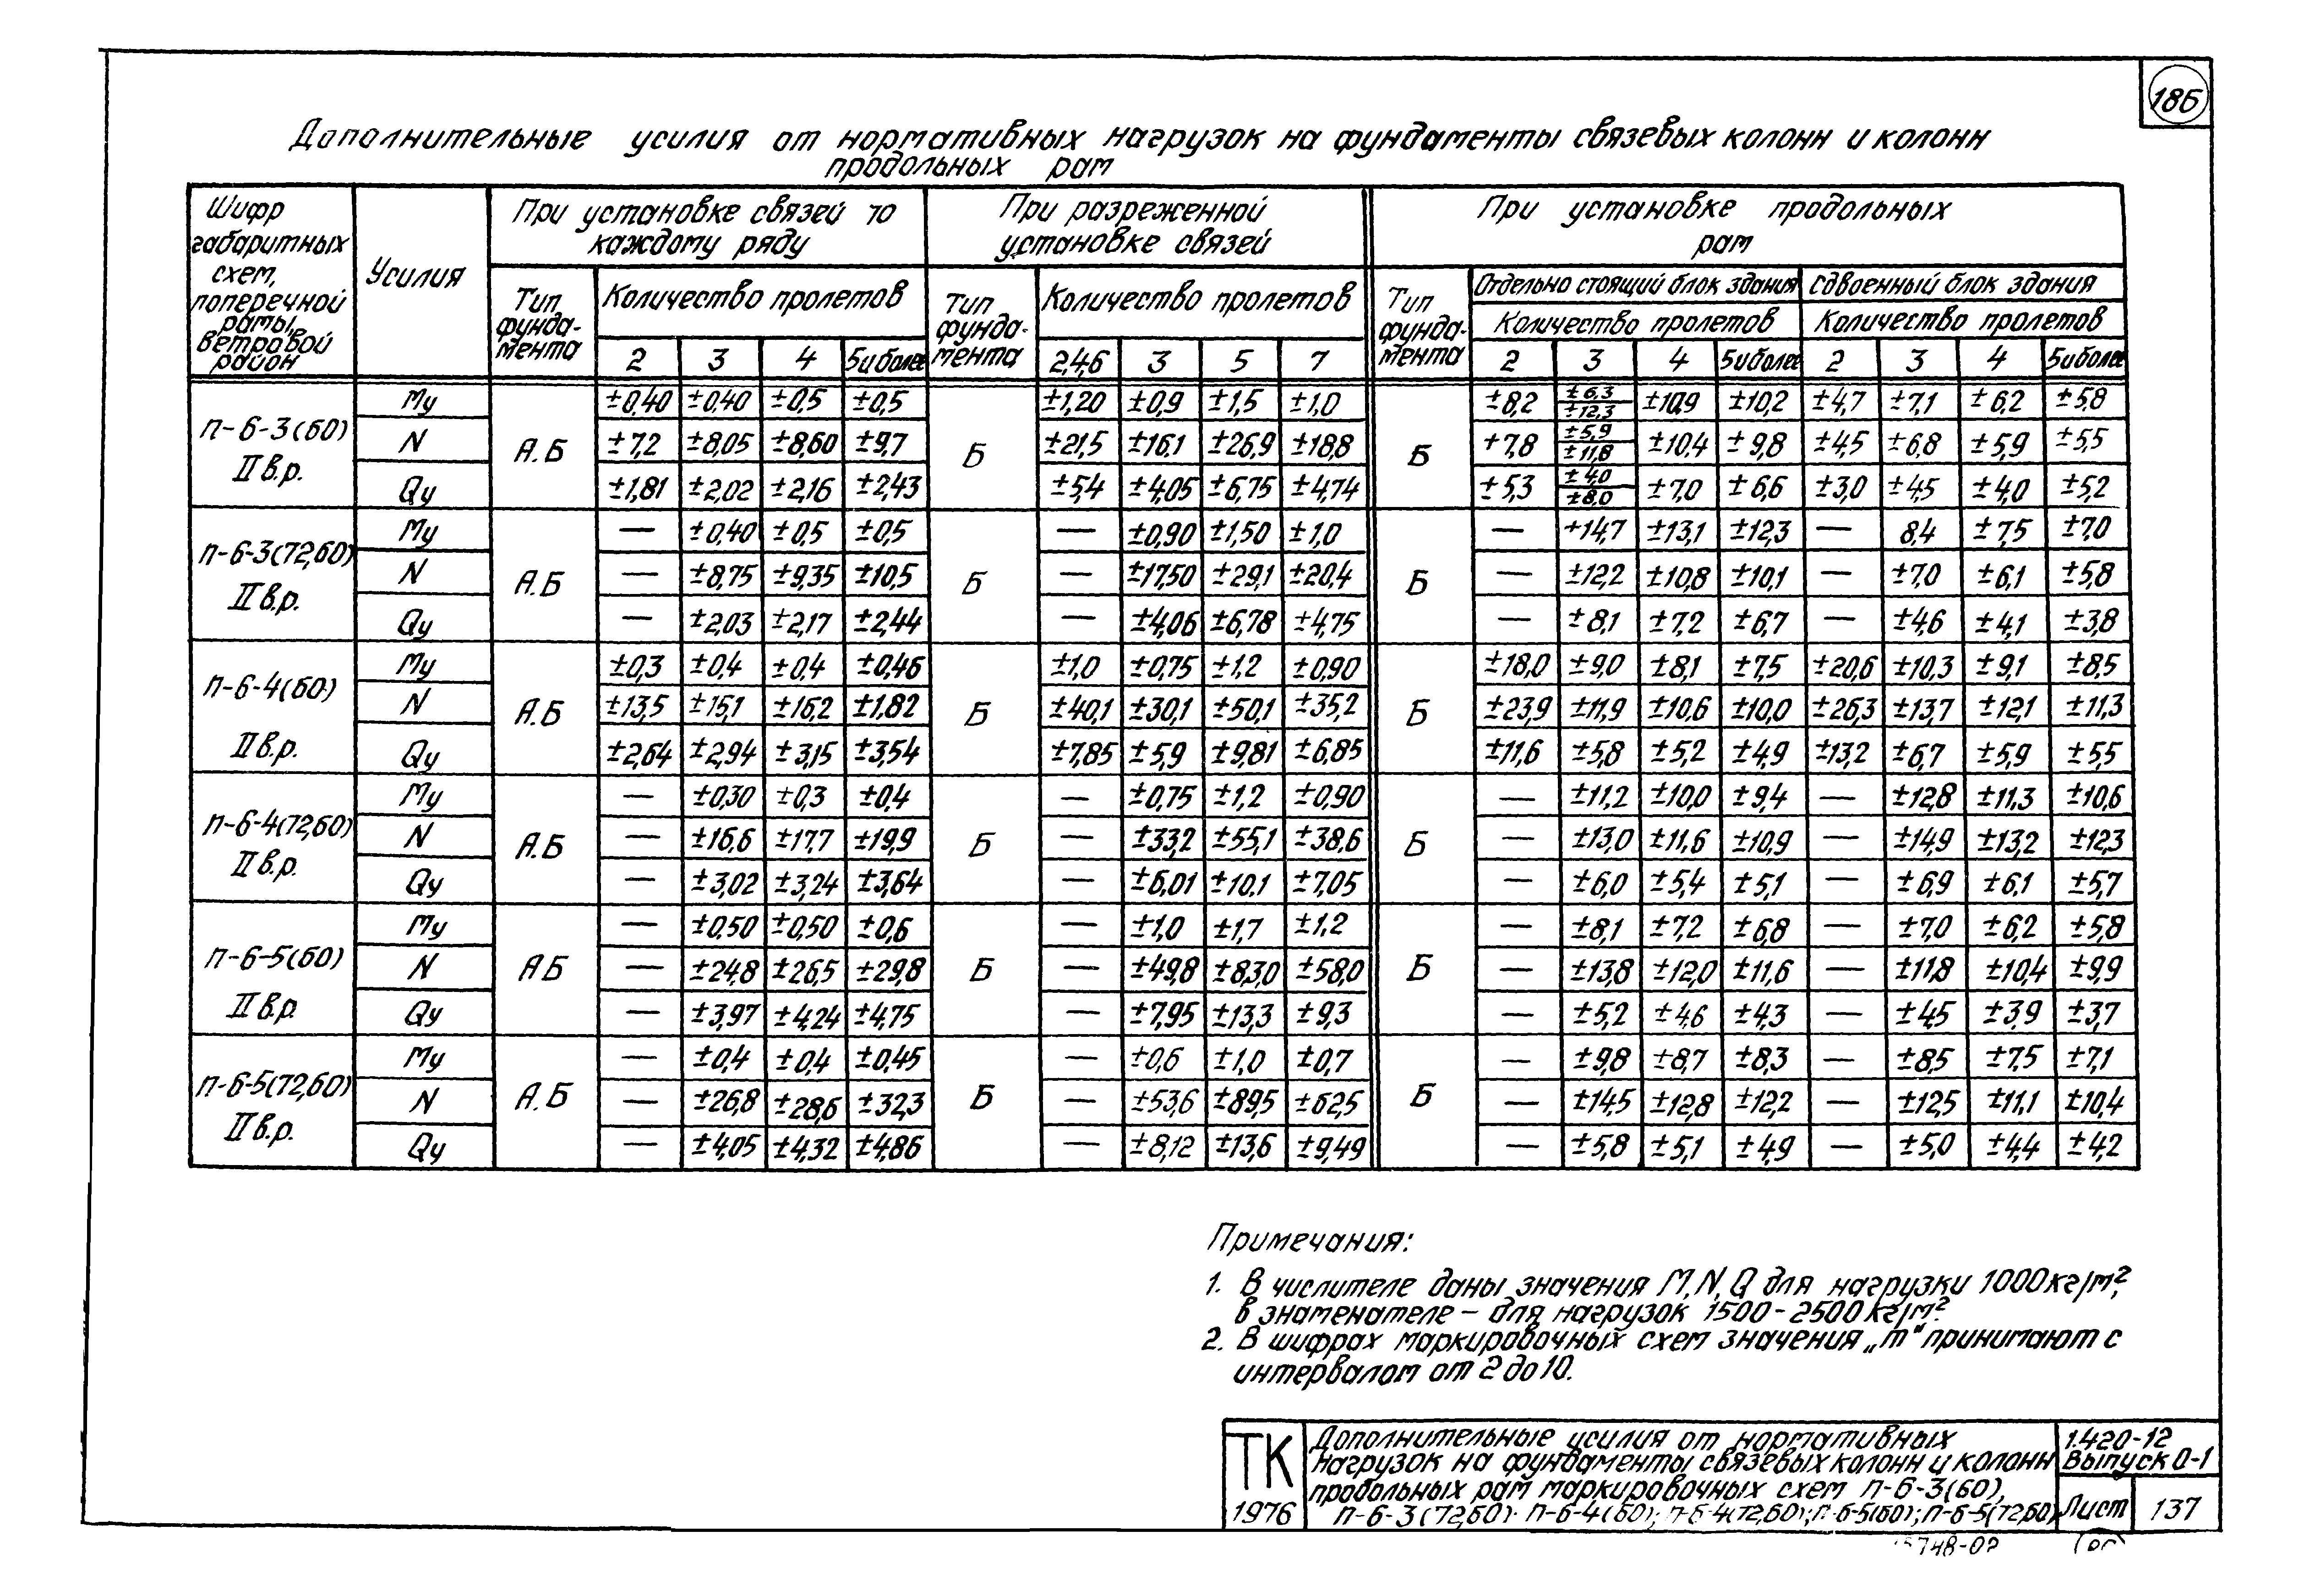 186
Дополнительные усилия от нормативных нагрузок на фундаменты связевых колонн и колонн
продольных рам
Шифр габаритных схем, поперечной рамы, ветровой район
Усилия
При установке связей по каждому ряду
При разреженной установке связей
При установке продольных рам
Тип фунда-мента
Количество пролетов
Тип фунда-мента
Количество пролетов
Тип фунда-мента
Отдельно стоящий блок здания
Сдвоенный блок здания
Количество пролетов
Количество пролетов
2 3 4 5 и более 2,4,6 3 5 7 2 3 4 5 и более 2 3 4 5 и более
п-6-3(60) II в.р.
Му А.Б ±0,40 ±0,40 ±0,5 ±0,5 Б ±1,20 ±0,9 ±1,5 ±1,0 Б ±8,2 ±6,3 ±12,3 ±10,9 ±10,2 ±4,7 ±7,1 ±6,2 ±5,8
N ±7,2 ±8,05 ±8,60 ±9,7 ±21,5 ±16,1 ±26,9 ±18,8 +7,8 ±5,9 ±11,8 ±10,4 ±9,8 ±4,5 ±6,8 ±5,9 ±5,5
Qу ±1,81 ±2,02 ±2,16 ±2,43 ±5,4 ±4,05 ±6,75 ±4,74 ±5,3 ±4,0 ±8,0 ±7,0 ±6,6 ±3,0 ±4,5 ±4,0 ±5,2
п-6-3(72,60) II в.р.
Му А.Б — ±0,40 ±0,5 ±0,5 Б — ±0,90 ±1,50 ±1,0 Б — +14,7 ±13,1 ±12,3 — 8,4 ±7,5 ±7,0
N — ±8,75 ±9,35 ±10,5 — ±17,50 ±29,1 ±20,4 — ±12,2 ±10,8 ±10,1 — ±7,0 ±6,1 ±5,8
Qу — ±2,03 ±2,17 ±2,44 — ±4,06 ±6,78 ±4,75 — ±8,1 ±7,2 ±6,7 — ±4,6 ±4,1 ±3,8
п-6-4(60) II в.р.
Му А.Б ±0,3 ±0,4 ±0,4 ±0,46 Б ±1,0 ±0,75 ±1,2 ±0,90 Б ±18,0 ±9,0 ±8,1 ±7,5 ±20,6 ±10,3 ±9,1 ±8,5
N ±13,5 ±15,1 ±16,2 ±1,82 ±40,1 ±30,1 ±50,1 ±35,2 ±23,9 ±11,9 ±10,6 ±10,0 ±26,3 ±13,7 ±12,1 ±11,3
Qу ±2,64 ±2,94 ±3,15 ±3,54 ±7,85 ±5,9 ±9,81 ±6,85 ±11,6 ±5,8 ±5,2 ±4,9 ±13,2 ±6,7 ±5,9 ±5,5
п-6-4(72,60) II в.р.
Му А.Б — ±0,30 ±0,3 ±0,4 Б — ±0,75 ±1,2 ±0,90 Б — ±11,2 ±10,0 ±9,4 — ±12,8 ±11,3 ±10,6
N — ±16,6 ±17,7 ±19,9 — ±33,2 ±55,1 ±38,6 — ±13,0 ±11,6 ±10,9 — ±14,9 ±13,2 ±12,3
Qу — ±3,02 ±3,24 ±3,64 — ±6,01 ±10,1 ±7,05 — ±6,0 ±5,4 ±5,1 — ±6,9 ±6,1 ±5,7
п-6-5(60) II в.р
Му А Б — ±0,50 ±0,50 ±0,6 Б — ±1,0 ±1,7 ±1,2 Б — ±8,1 ±7,2 ±6,8 — ±7,0 ±6,2 ±5,8
N — ±24,8 ±26,5 ±29,8 — ±49,8 ±8,30 ±58,0 — ±13,8 ±12,0 ±11,6 — ±11,8 ±10,4 ±9,9
Qу — ±3,97 ±4,24 ±4,75 — ±7,95 ±13,3 ±9,3 — ±5,2 ±4,6 ±4,3 — ±4,5 ±3,9 ±3,7
п-6-5(72,60) II в.р.
Му А.Б — ±0,4 ±0,4 ±0,45 Б — ±0,6 ±1,0 ±0,7 Б — ±9,8 ±8,7 ±8,3 — ±8,5 ±7,5 ±7,1
N — ±26,8 ±28,6 ±32,3 — ±53,6 ±89,5 ±62,5 — ±14,5 ±12,8 ±12,2 — ±12,5 ±11,1 ±10,4
Qу — ±4,05 ±4,32 ±4,86 — ±8,12 ±13,6 ±9,49 — ±5,8 ±5,1 ±4,9 — ±5,0 ±4,4 ±4,2
Примечания:
1. В числителе даны значения M, N, Q для нагрузки 1000кг/м²,
в знаменателе — для нагрузок 1500-2500 кг/м².
2. В шифрах маркировочных схем значения „m" принимают с
интервалом от 2 до 10.
ТК
1976
Дополнительные усилия от нормативных
нагрузок на фундаменты связевых колонн и колонн
продольных рам маркировочных схем п-6-3(60),
п-6-3(72,60); п-6-4(60); п-6-4(72,60); п-6-5(60); п-6-5(72,60)
1.420-12
Выпуск 0-1
Лист 137